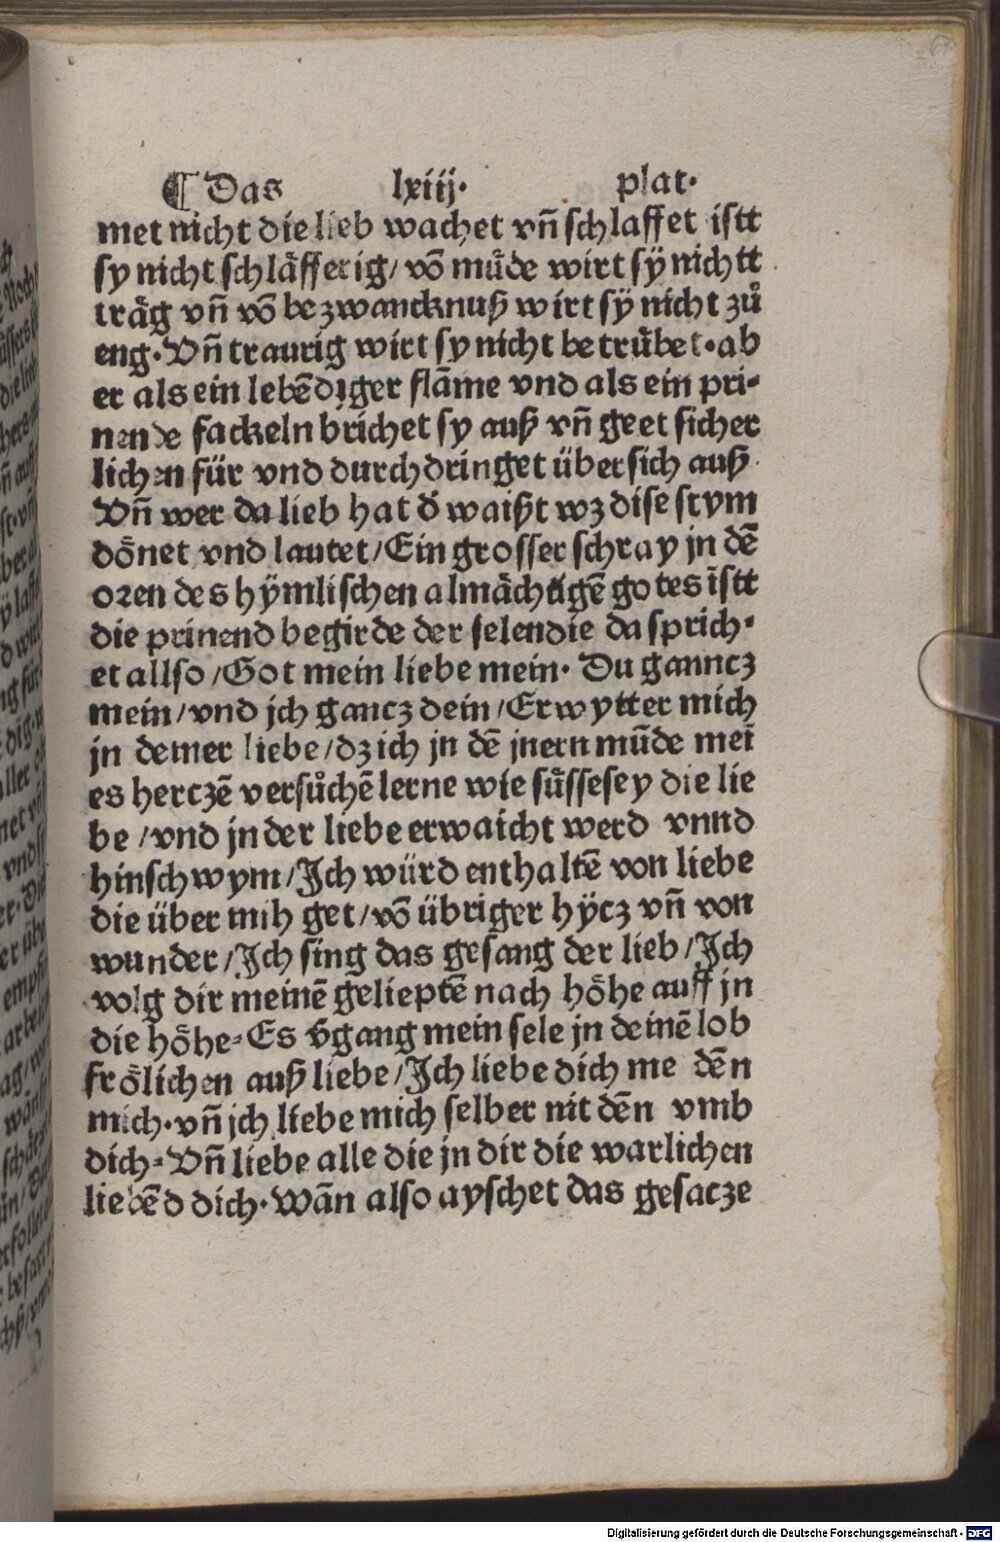 ¶ Das lxiij. plat.
met nicht die lieb wachet vñ schlaffet istt
sy nicht schläfferig/ võ müde wirt sÿ nichtt
träg vñ võ bezwancknuß wirt sÿ nicht zů
eng. Vñ traurig wirt sy nicht betrübet. ab
er als ein lebẽdiger flãme vnd als ein pri-
nende fackeln brichet sy auß vñ geet sicher
lichen für vnd durchdringet übersich auß.
Vñ wer da lieb hat d̕ waißt wz dise stym
dönet vnd lautet/Ein grosser schray jn dẽ
oren des hÿmlischen almächtigẽ gotes istt
die prinend begirde der selen die da sprich-
et allso/Got mein liebe mein. Du ganncz
mein/vnd jch gancz dein/Erwytter mich
jn deiner liebe/dz ich jn dẽ jnern mũde meĩ
es herczẽ versůchẽ lerne wie süssesey die lie
be/vnd jn der liebe erwaicht werd vnnd
hinschwym/Ich würd enthaltẽ von liebe
die über mih get/võ übriger hÿcz vñ von
wunder/Ich sing das gesang der lieb/Ich
volg dir meinẽ gelieptẽ nach höhe auff jn
die höhe. Es v̕gang mein sele jn deinẽ lob
frölichen auß liebe/Ich liebe dich me dẽn
mich. vñ jch liebe mich selber nit dẽn vmb
dich. Vñ liebe alle die jn dir die warlichen
liebẽd dich. Wãn also ayschet das gesacze
Digitalisierung gefördert durch die Deutsche Forschungsgemeinschaft - DFG